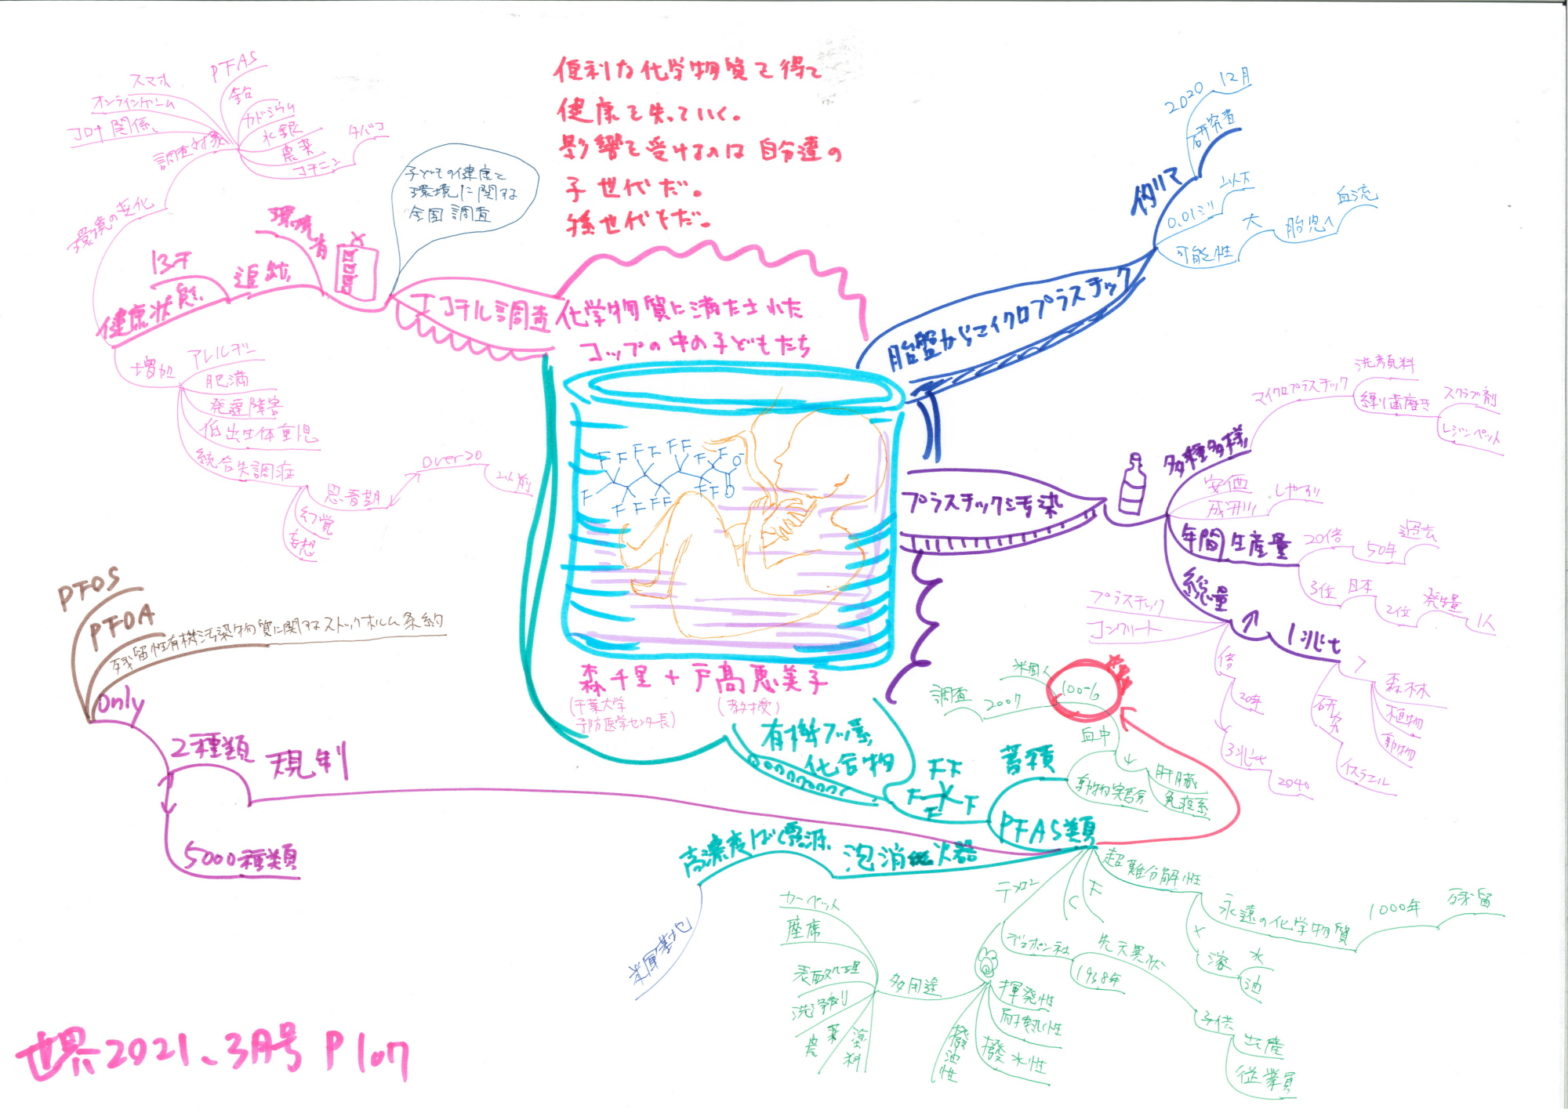 便利な化学物質を得て
健康を失っていく。
影響を受けるのは自分達の
子世代だ。
孫世代もだ。
化学物質に満たされた
コップの中の子どもたち
森千里+戸髙恵美子
(千葉大学
予防医学センター長)
(教授)
エコチル調査
子どもの健康と
環境に関する
全国調査
環境省
追跡
13才
健康状態
環境の変化
調査対象
スマホ
オンラインゲーム
コロナ関係
PFAS
鉛
カドミウム
水銀
農薬
コチニン
タバコ
増加
アレルギー
肥満
発達障害
低出生体重児
統合失調症
思春期
over20
以前
幻覚
妄想
胎盤からマイクロプラスチック
イタリア
研究者
2020 12月
0.01ミリ
以下
可能性
大
胎児へ
血流
プラスチック汚染
多種多様
マイクロプラスチック
洗顔料
練り歯磨き
スクラブ剤
レジンペレット
安価
成形
しやすい
年間生産量
20倍
50年
過去
3位
日本
2位
発生量
1人
総量
↑
1兆t
プラスチック
コンクリート
倍
20年
3兆t
2040
>
森林
植物
動物
研究
イスラエル
有機フッ素
化合物
F F F F F
F F F F F F F F F F F F F F F O O
PFAS類
蓄積
動物実験
血中
↓
肝臓
免疫系
100%
米国人
2007
調査
超難分解性
永遠の化学物質
1000年
残留
×
溶
水
油
F
C
テフロン
デュポン社
1938年
先天異状
子供
出産
従業員
揮発性
耐熱性
撥水性
撥油性
多用途
カーペット
座席
表面処理
洗浄剤
農薬
塗料
泡消火器
高濃度ばく露源
米軍基地
規制
2種類
only
PFOS
PFOA
残留性有機汚染物質に関するストックホルム条約
5000種類
世界2021、3月号 P107